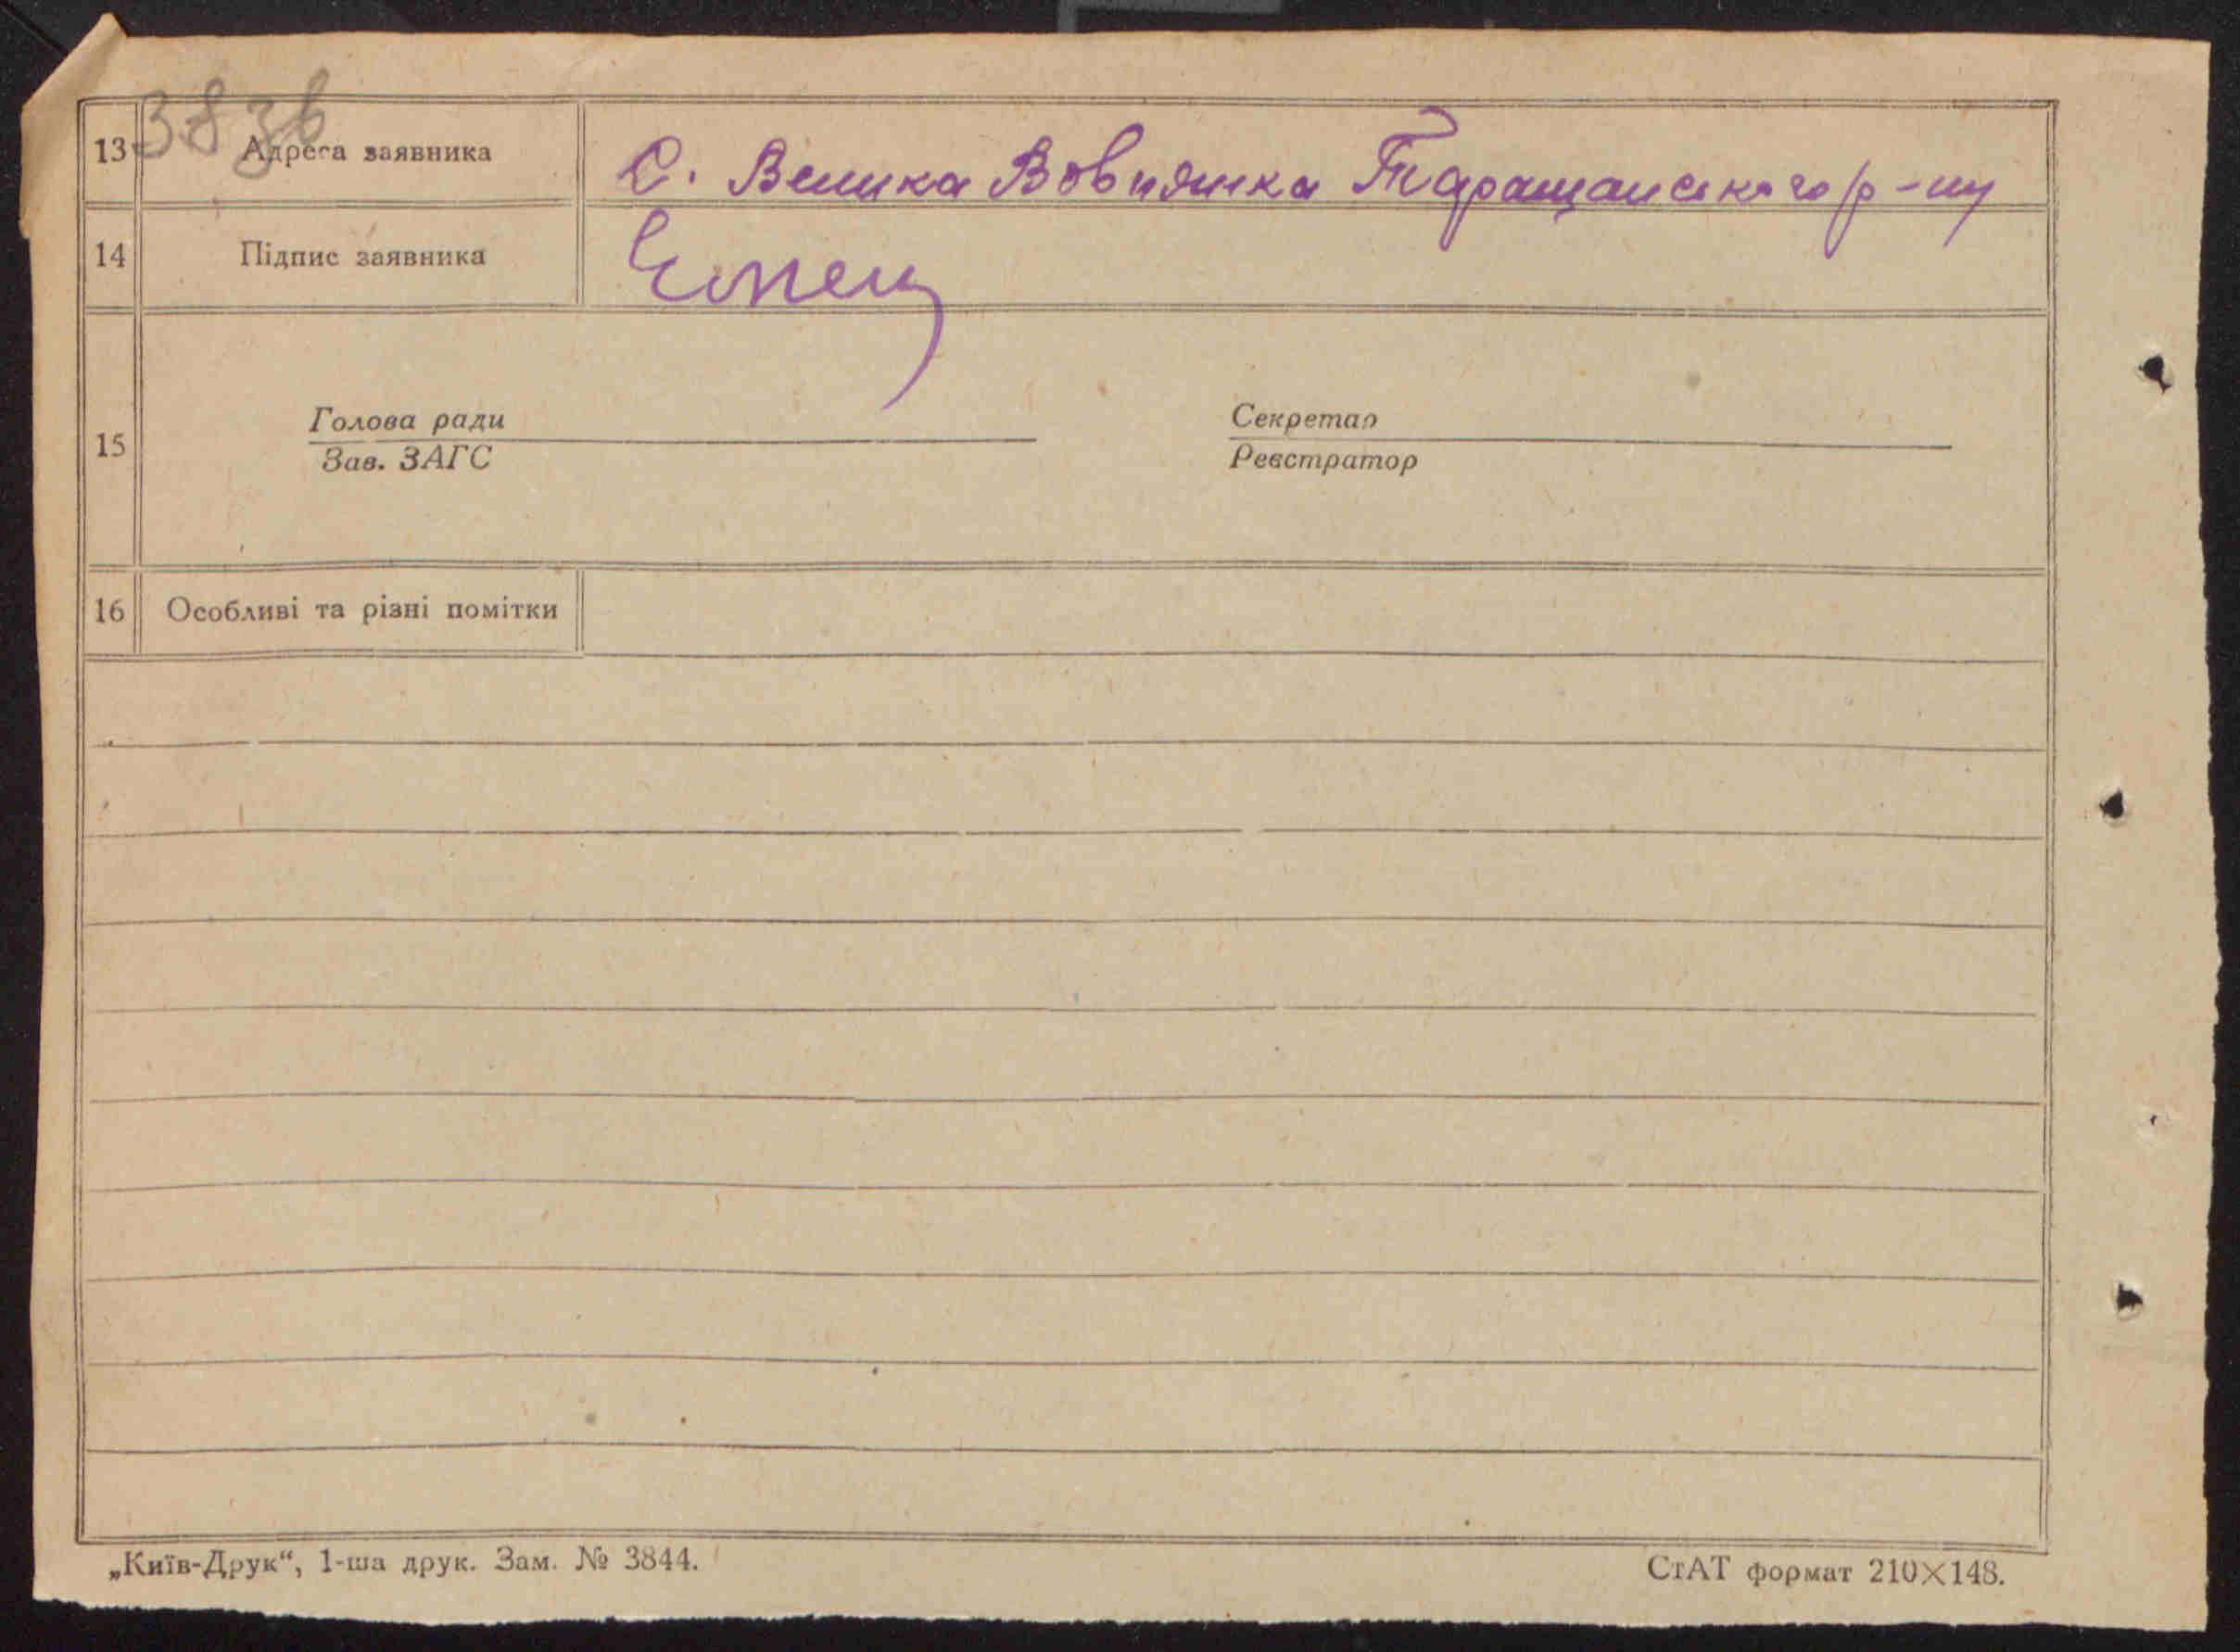 383в
13 Адреса заявника С. Велика Вовнянка Таращанського р-ну
14 Підпис заявника Ємец
15 Голова ради Секретар
Зав. ЗАГС Реєстратор
16 Особливі та різні помітки
„Київ-Друк“, 1-ша друк. Зам. № 3844. СтАТ формат 210×148.